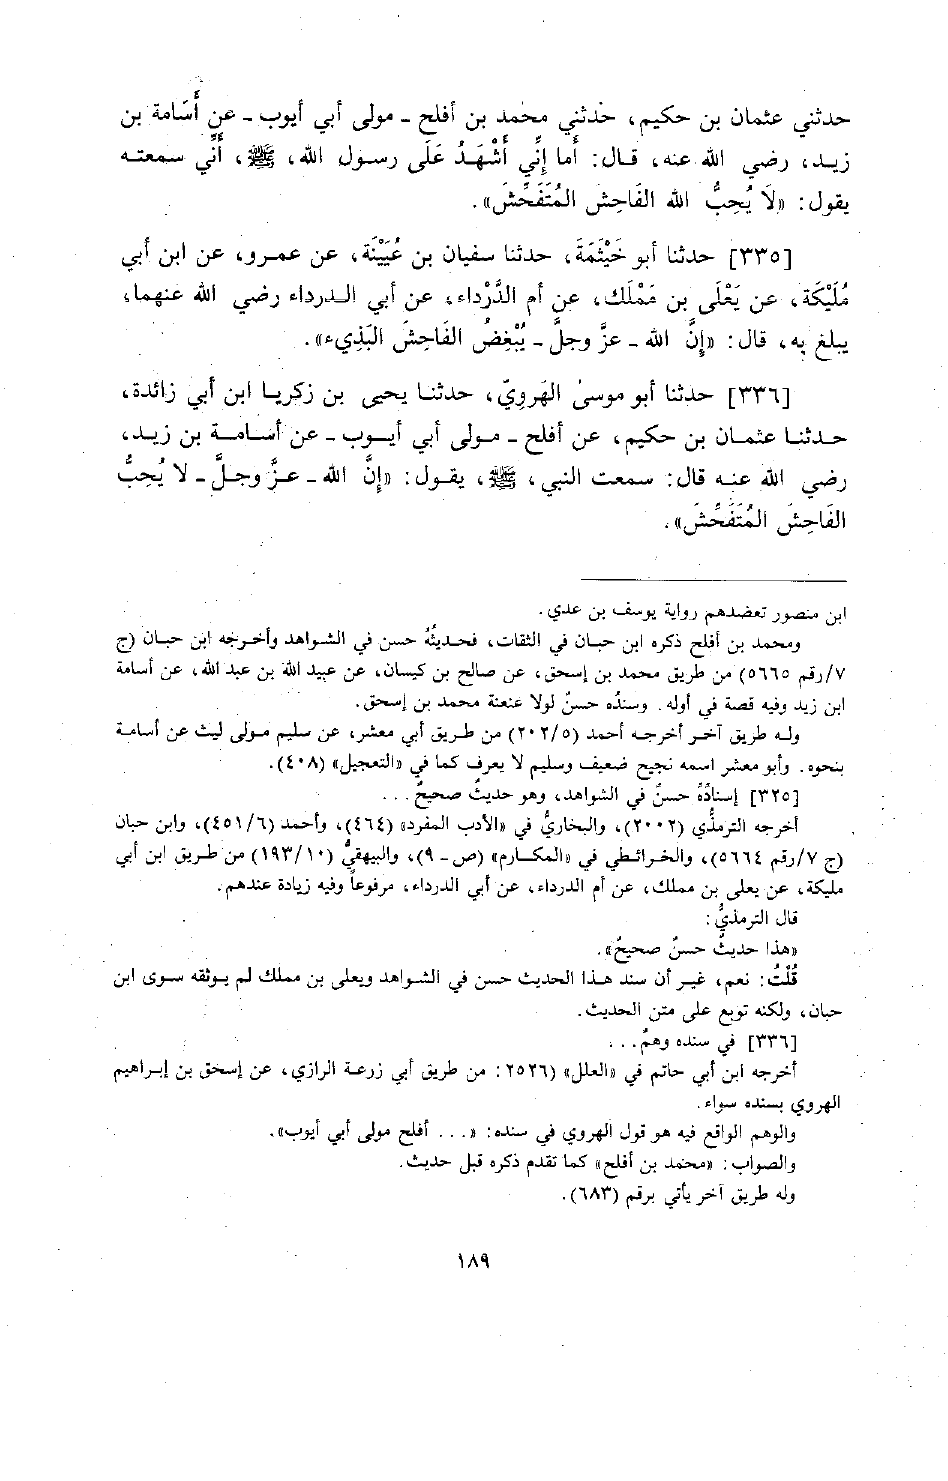 حدثني عثمان بن حكيم، حدثني محمد بن أفلح - مولى أبي أيوب - عن أُسَامة بن
زيد، رضي الله عنه، قال: أما إِنِّي أَشْهَدُ عَلَى رسول الله، ﷺ، أَنِّي سمعته
يقول: «لَا يُحِبُّ الله الفَاحِش المُتَفَحِّش».
[٣٣٥] حدثنا أبو خَيْثَمَةَ، حدثنا سفيان بن عُيَيْنَة، عن عمرو، عن ابن أبي
مُلَيْكَة، عن يَعْلَى بن مَمْلَك، عن أم الدَّرْداء، عن أبي الدرداء رضي الله عنهما،
يبلغ به، قال: «إِنَّ الله - عزَّ وجلَّ - يُبْغِضُ الفَاحِشَ البَذِيء».
[٣٣٦] حدثنا أبو موسىٰ الهَرويّ، حدثنا يحيى بن زكريا ابن أبي زائدة،
حدثنا عثمان بن حكيم، عن أفلح - مولى أبي أيوب - عن أسامة بن زيد،
رضي الله عنه قال: سمعت النبي، ﷺ، يقول: «إِنَّ الله - عزَّ وجلَّ - لا يُحِبُّ
الفَاحِشَ المُتَفَحِّشَ».
ابن منصور تعضدهم رواية يوسف بن عدي.
ومحمد بن أفلح ذكره ابن حبان في الثقات، فحديثُهُ حسن في الشواهد وأخرجه ابن حبان (ج
٧/رقم ٥٦٦٥) من طريق محمد بن إسحق، عن صالح بن كيسان، عن عبيد الله بن عبد الله، عن أسامة
ابن زيد وفيه قصة في أوله. وسندُه حسنٌ لولا عنعنة محمد بن إسحق.
وله طريق آخر أخرجه أحمد (٢٠٢/٥) من طريق أبي معشر، عن سليم مولى ليث عن أسامة
بنحوه. وأبو معشر اسمه نجيح ضعيف وسليم لا يعرف كما في «التعجيل» (٤٠٨).
[٣٢٥] إسنادُهُ حسنٌ في الشواهد، وهو حديثٌ صحيحٌ...
أخرجه الترمذُي (٢٠٠٢)، والبخاريُّ في «الأدب المفرد» (٤٦٤)، وأحمد (٤٥١/٦)، وابن حبان
(ج ٧/رقم ٥٦٦٤)، والخرائطي في «المكارم» (ص - ٩)، والبيهقيُّ (١٩٣/١٠) من طريق ابن أبي
مليكة، عن يعلى بن مملك، عن أم الدرداء، عن أبي الدرداء، مرفوعاً وفيه زيادة عندهم.
قال الترمذيُّ:
«هذا حديثٌ حسنٌ صحيحٌ».
قُلْتُ: نعم، غير أن سند هذا الحديث حسن في الشواهد ويعلى بن مملك لم يوثقه سوى ابن
حبان، ولكنه توبع على متن الحديث.
[٣٣٦] في سنده وهمٌ...
أخرجه ابن أبي حاتم في «العلل» (٢٥٢٦: من طريق أبي زرعة الرازي، عن إسحق بن إبراهيم
الهروي بسنده سواء.
والوهم الواقع فيه هو قول الهروي في سنده: «... أفلح مولى أبي أيوب».
والصواب: «محمد بن أفلح» كما تقدم ذكره قبل حديث.
وله طريق آخر يأتي برقم (٦٨٣).
١٨٩